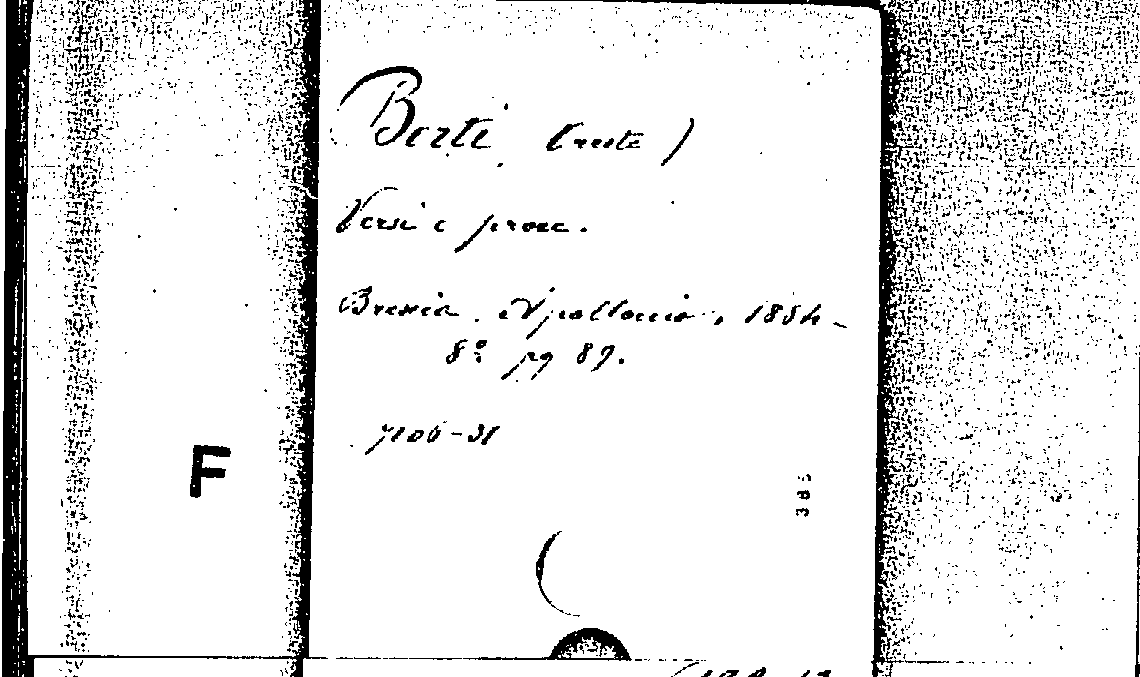 Berti
Versi e prose.
Brescia. Apollonio, 1884-
8º pg 89.
7106-31
F
385